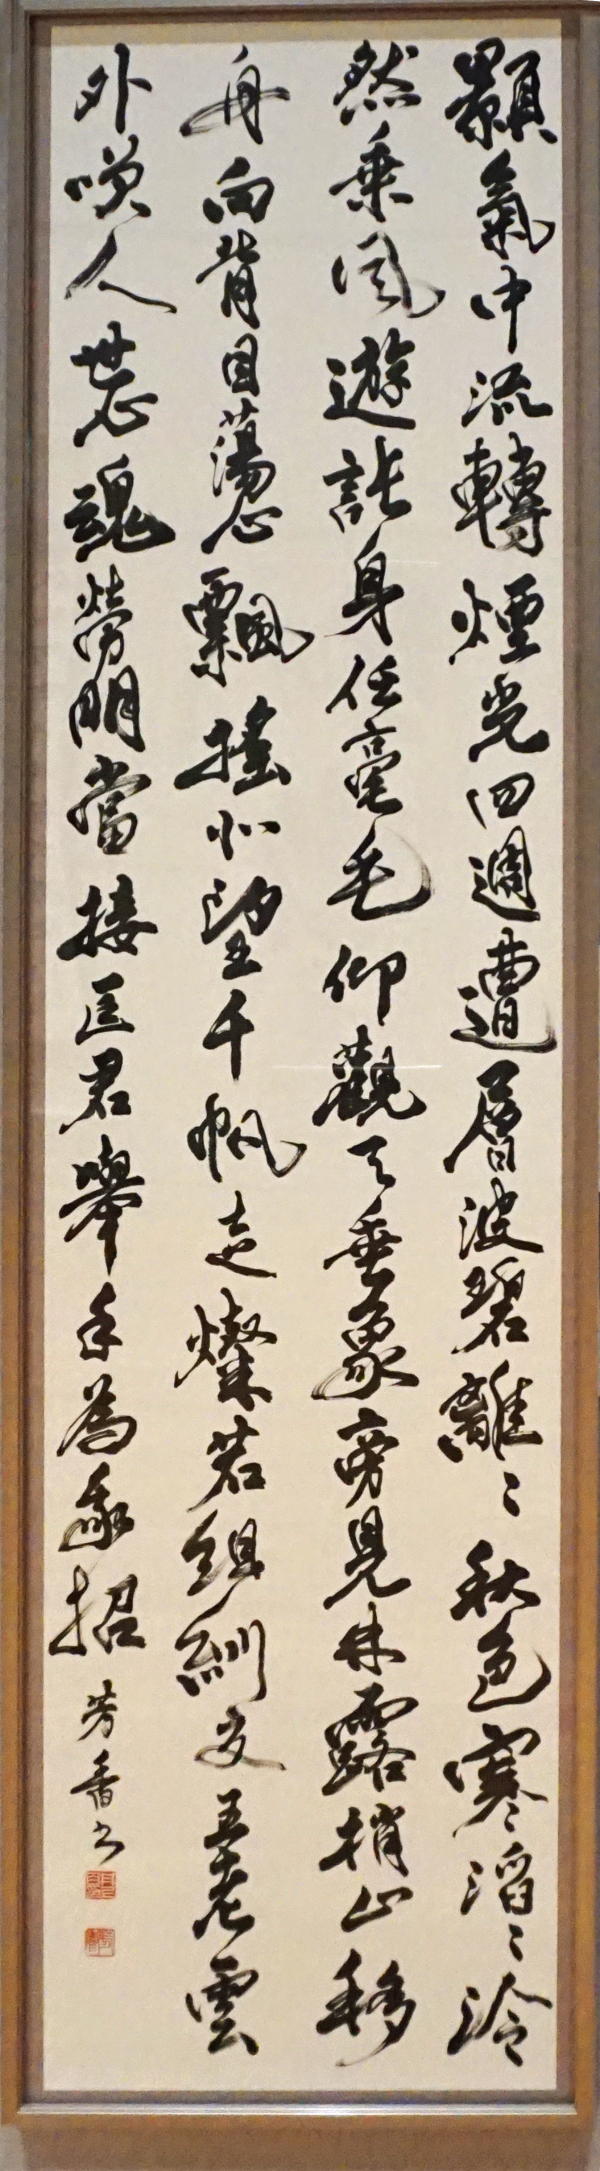 顥氣中流轉煙光四週遭層波碧離〻秋色寒滔〻泠
然乘風遊託身任毫毛仰觀天垂象旁見林露梢山移
舟向背目蕩心飄搖北望千帆走燦若組紃交五老雲
外嘆人世忘魂勞明當接匡君舉手為我招
芳香書